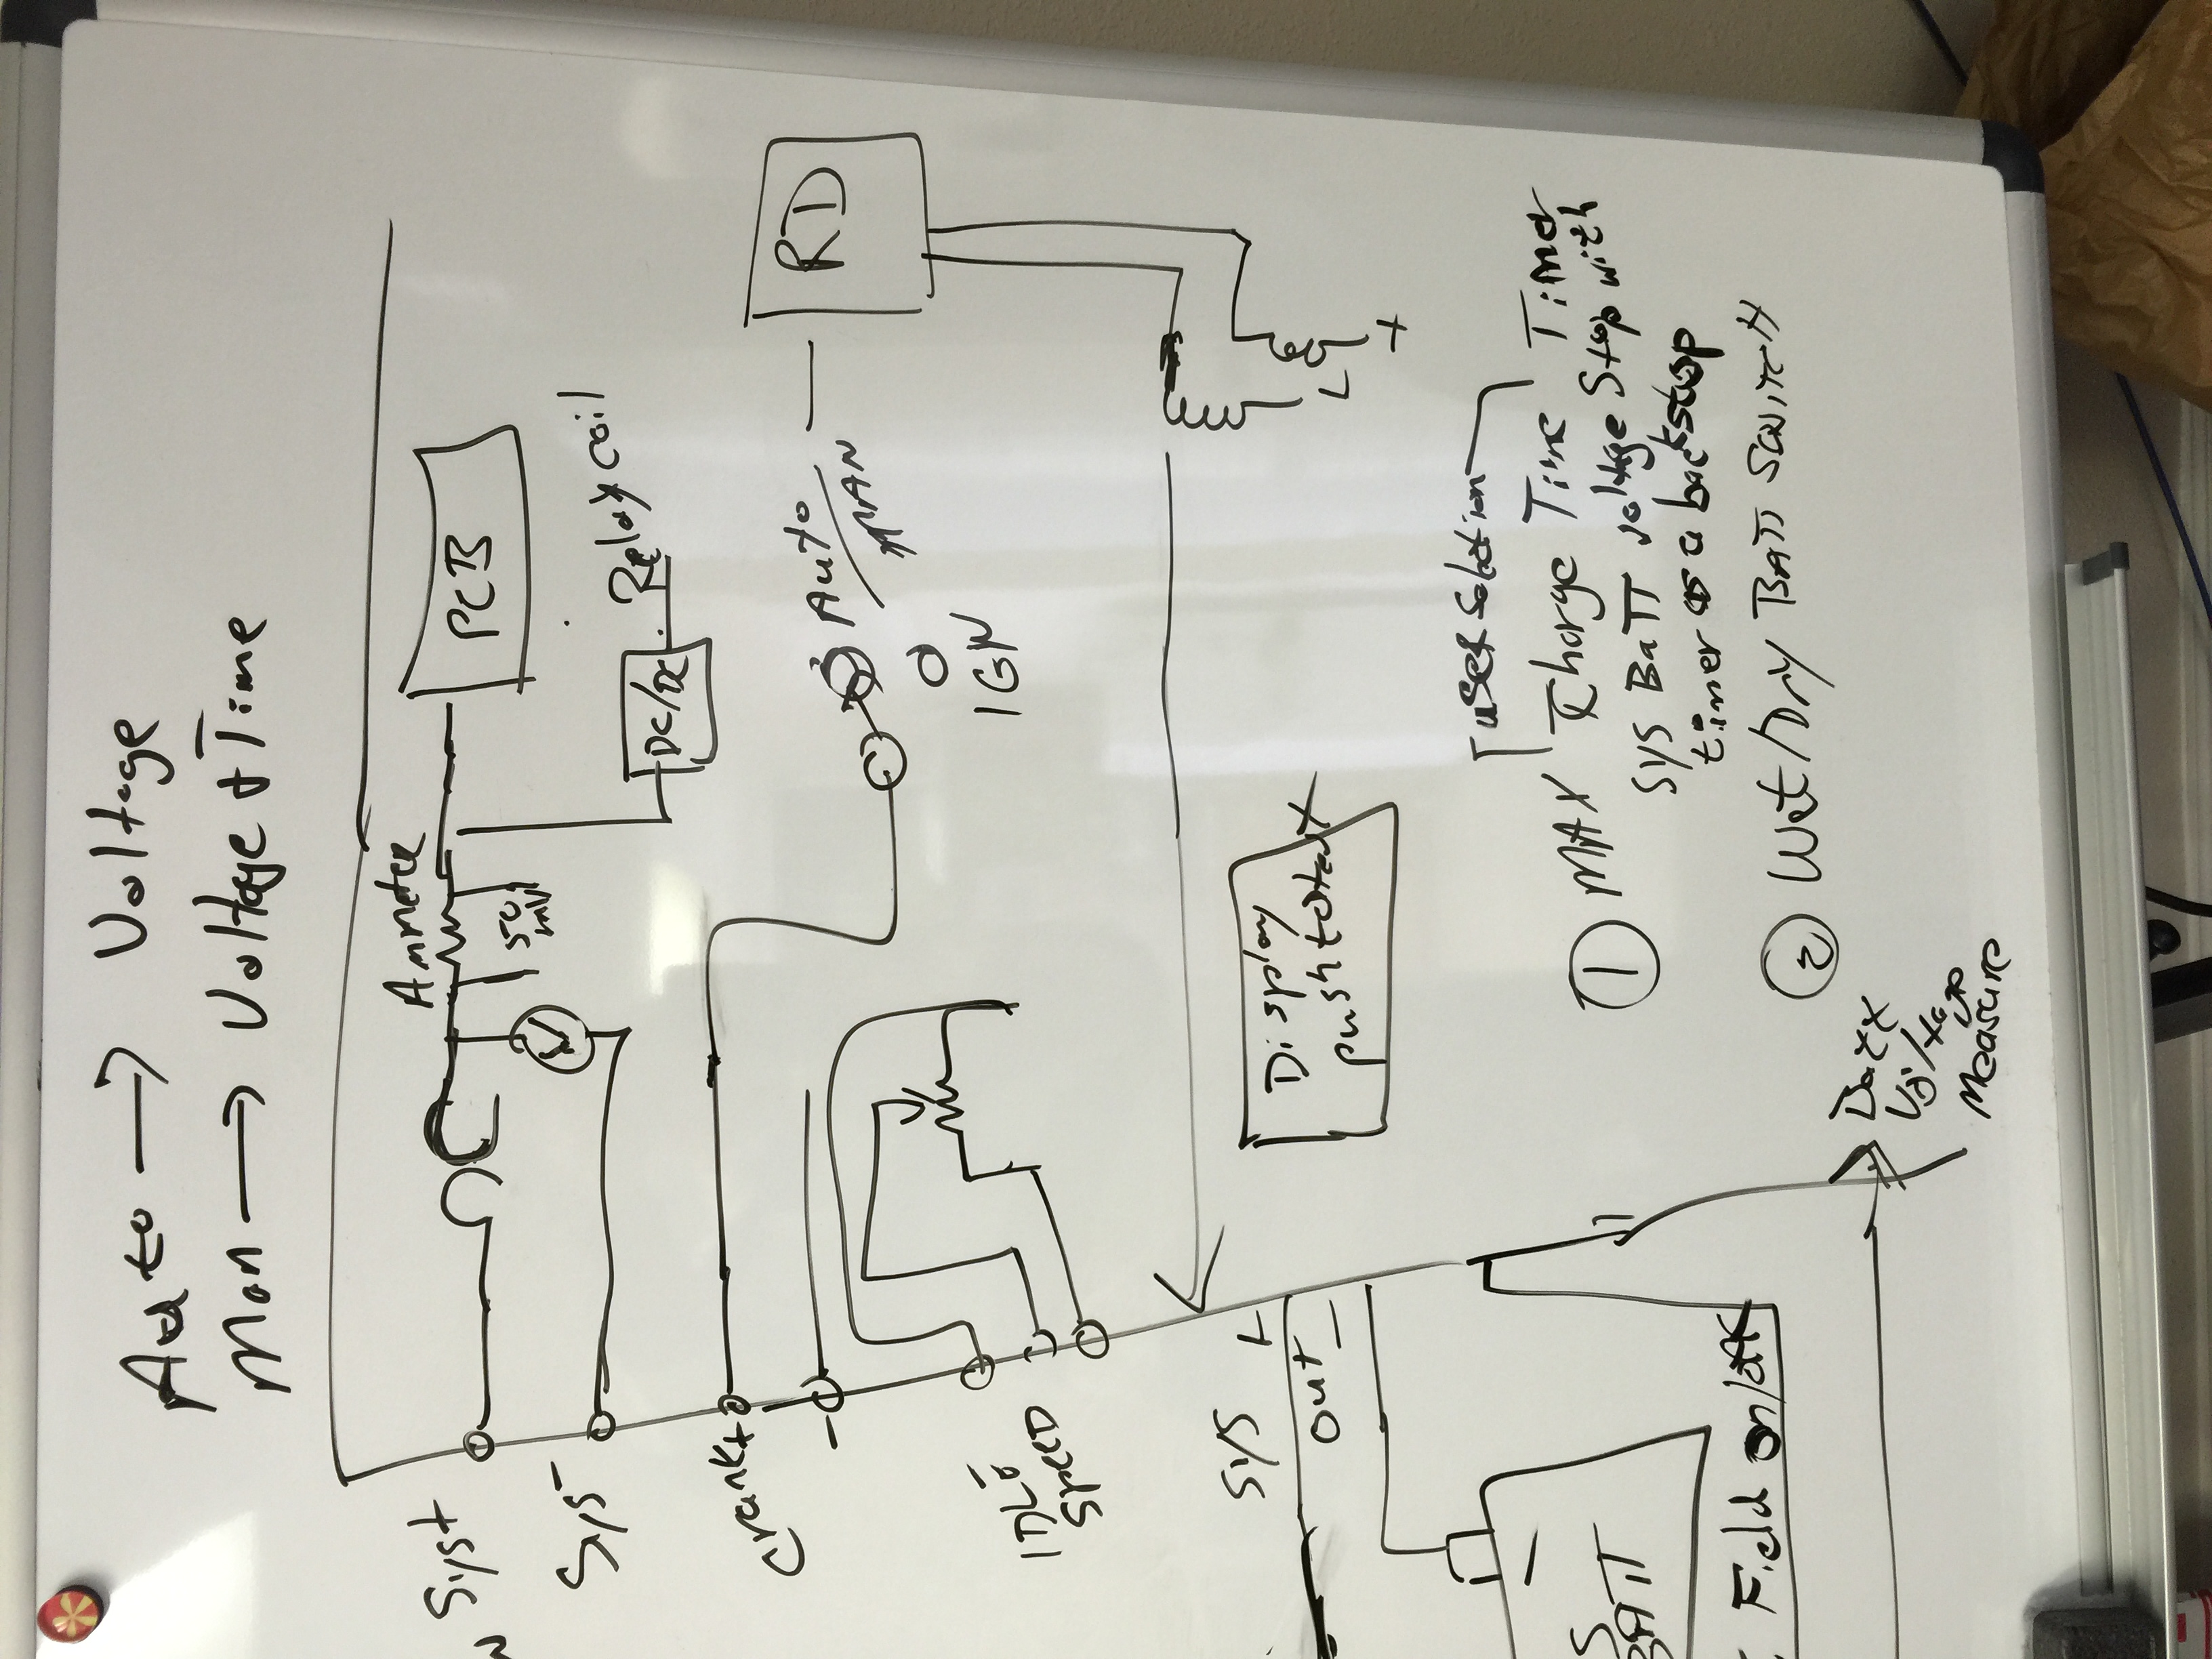 Auto → Voltage
Man → Voltage & Time
Sys+
Ammeter
PCB
50
mV
V
Sys-
DC/DC
Relay coil
Crank+
-
Auto
MAN
RD
IGN
IDLE
SPEED
SYS +
out -
Display
push to test
L
+
-
S
BATT
user selection
① MAX Charge Time Timer
SYS BATT voltage Stop with
timer as a backstop
② Wet/Dry BATT SWITCH
Field on/off
Batt
Voltage
Measure